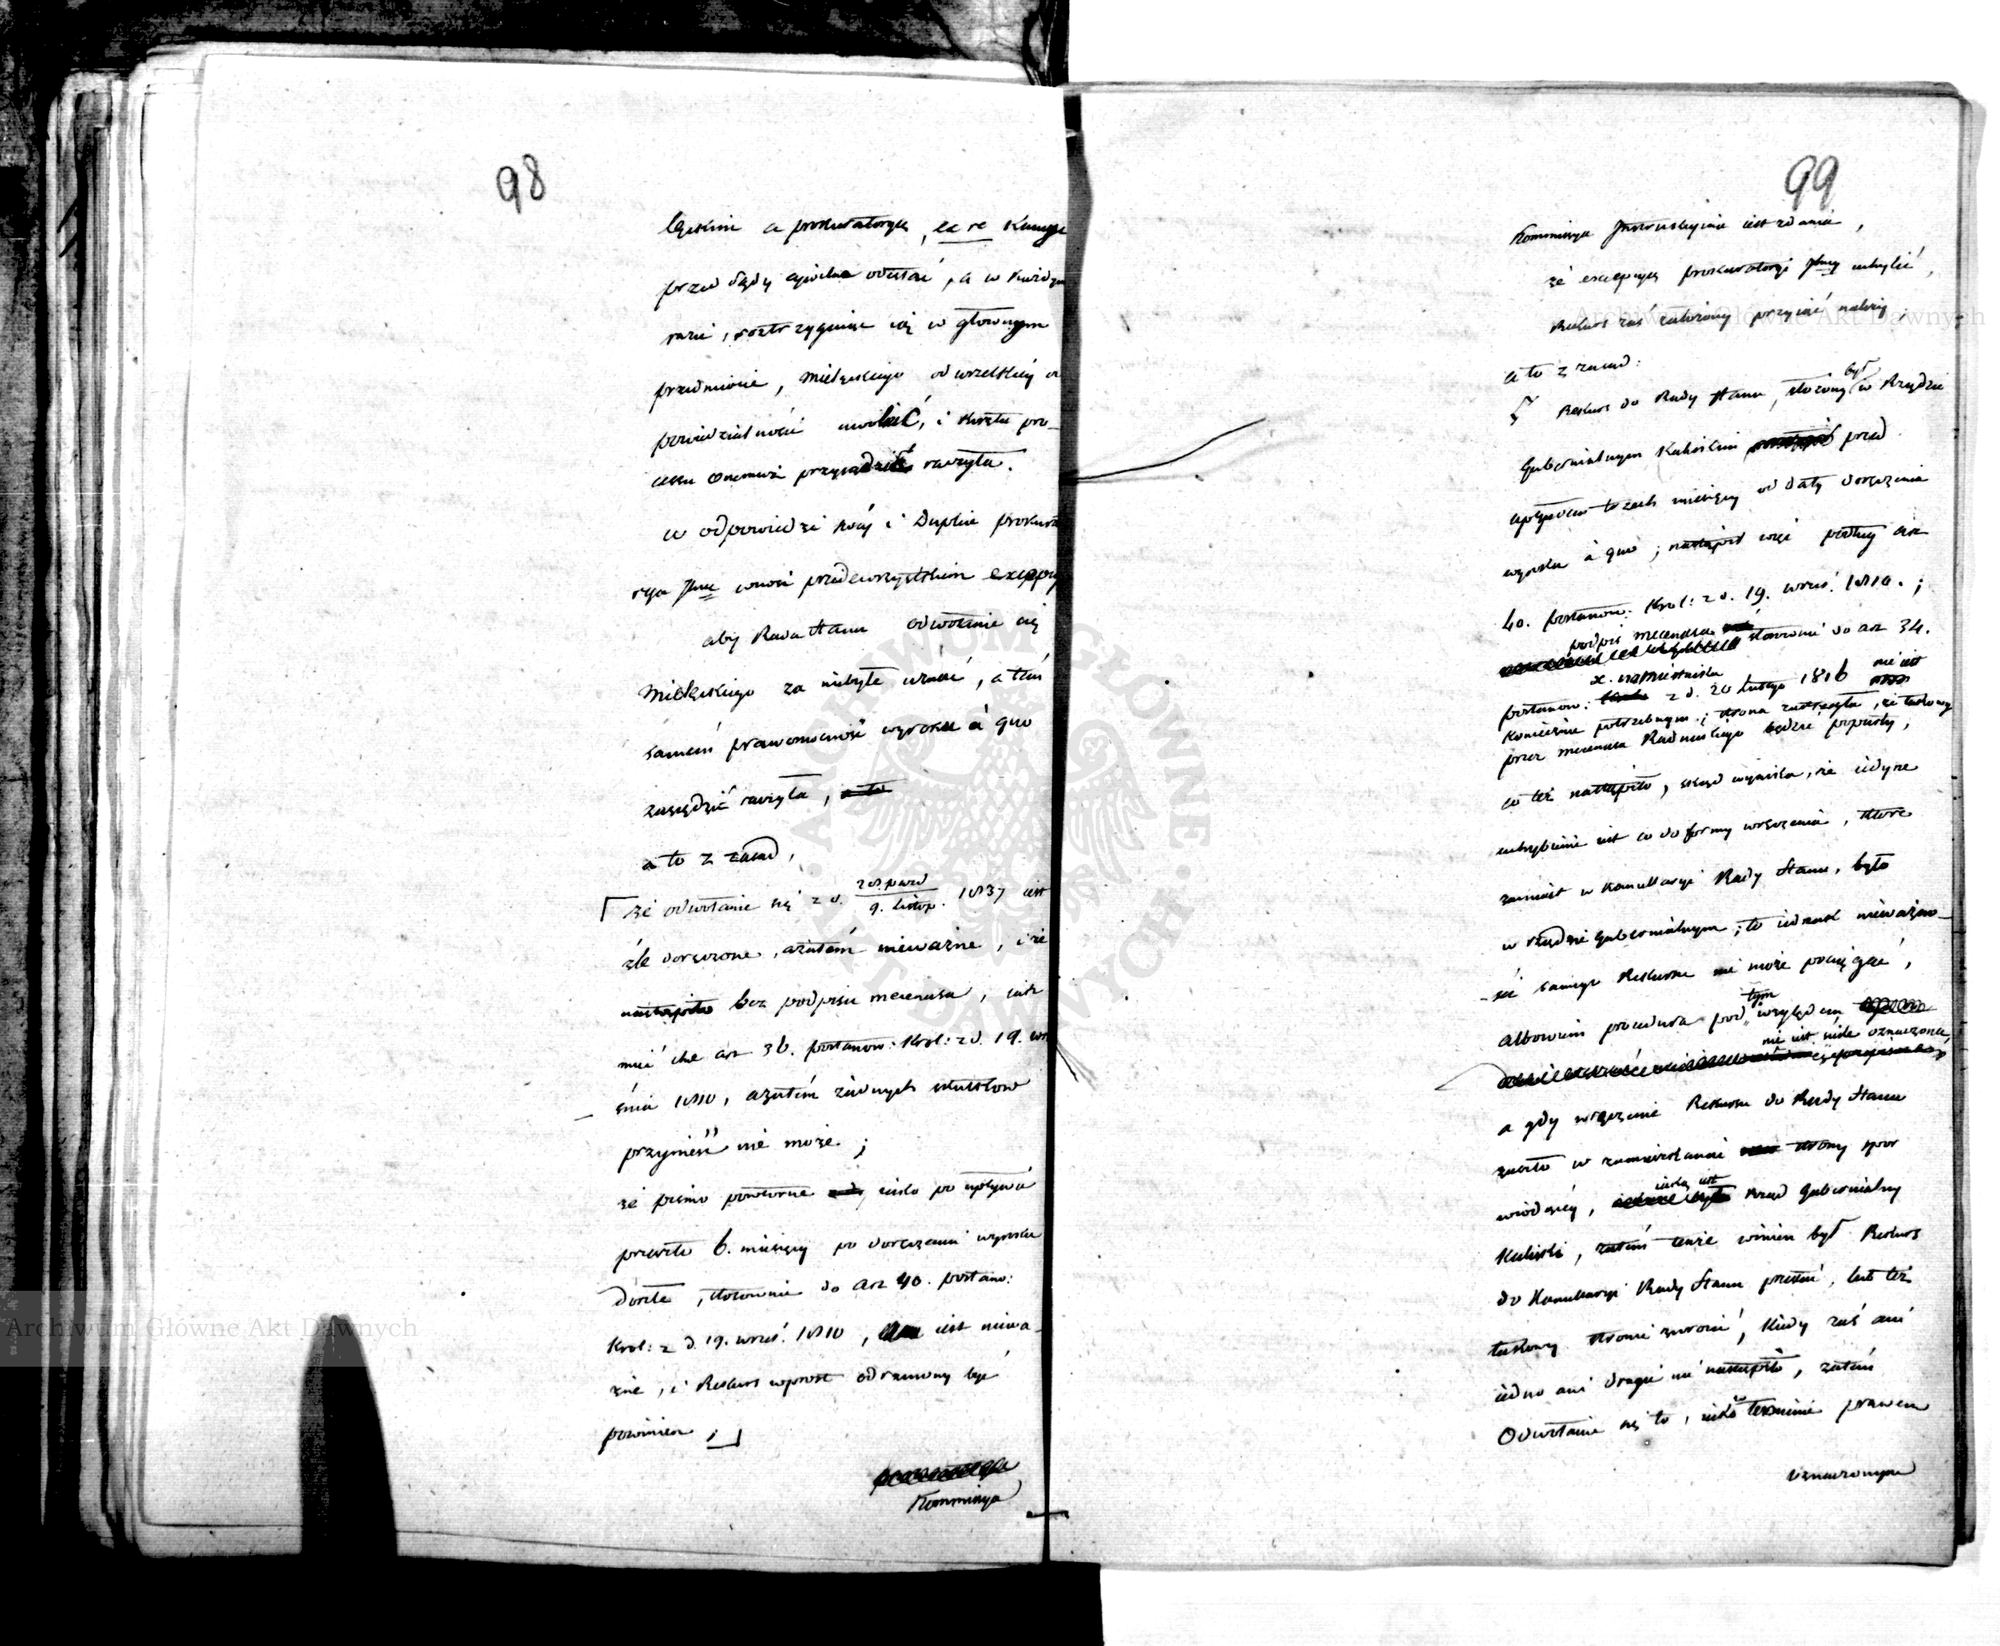 98
lęckim a prokuratoryą, ex re
przed sądy cywilne odesłać, a w każdym
razie, rozstrzygając się w głównym
przedmiocie, Mielęckiego od wszelkiej o
powiedzialności uwolnić, i koszta pro-
cessu onemuż przysądzić raczyła.
w odpowiedzi swej i Duplice prokura
rya wnosi przedewszystkiem excepcyą
aby Rada Stanu odwołanie się
Mielęckiego za niebyłe uznać, a tém
samém prawomocność wyroku à quo
zasądzić raczyła, a to
a to z zasad,
że odwołanie się z d. 28. paźd / 9. listop. 1837 iest
źle doręczone, a zatém nieważne, i że
nastąpiło bez podpisu mecenasa, iak
mieć chce art 36. postanow: Król: z d. 19. wrz
śnia 1810, a zatém żadnych skutków
przynieść nie może;
że pismo powtórne iako po upływie
przeszło 6. miesięcy po doręczeniu wyroku
doszłe, stosownie do art 40. postano:
Król: z d. 19. wrześ. 1810, iest nieważ-
żne, i Rekurs wprost odrzucony być
powinien;
Kommissya
99
Kommissya Instrukcyina iest zdania,
że excepcyą prokuratoryi uchylić,
Rekurs zaś założony przyiąć należy,
a to z zasad:
Rekurs do Rady Stanu, złożony był w Rządzie
Gubernialnym Kaliskim przed
upływem trzech miesięcy od daty doręczenia
wyroku à quo; nastąpił więc podług art
40. postanow: Król: z d. 19. wrześ. 1810.;
podpis mecenasa stosownie do art 34.
postanow: x. namiestnika z d. 20 lutego 1816 nie iest
koniecznie potrzebnym; strona zastrzegła, że takowy
przez mecenasa będzie popierany,
co też nastąpiło, skąd wynika, że iedyne
uchybienie iest co do formy wręczenia, które
zamiast w kancellaryi Rady Stanu, było
w rządzie Gubernialnym; to iednak nieważno-
-ści samego Rekursu nie może pociągać,
albowiem procedura pod tym względem
nie iest ściśle oznaczona,
a gdy wręczenie Rekursu do Rady Stanu
zaszło w zamieszkaniu strony spor
wiodącej, iaką iest Rząd Gubernialny
Kaliski, zatém tenże winien był Rekurs
do Kancellaryi Rady Stanu przesłać, lub też
takowy stronie zwrócić, kiedy zaś ani
iedno ani drugie nie nastąpiło, zatém
Odwołanie się to, iako w terminie prawem
oznaczonym
Archiwum Główne Akt Dawnych
Archiwum Główne Akt Dawnych
ARCHIWUM GŁÓWNE AKT DAWNYCH